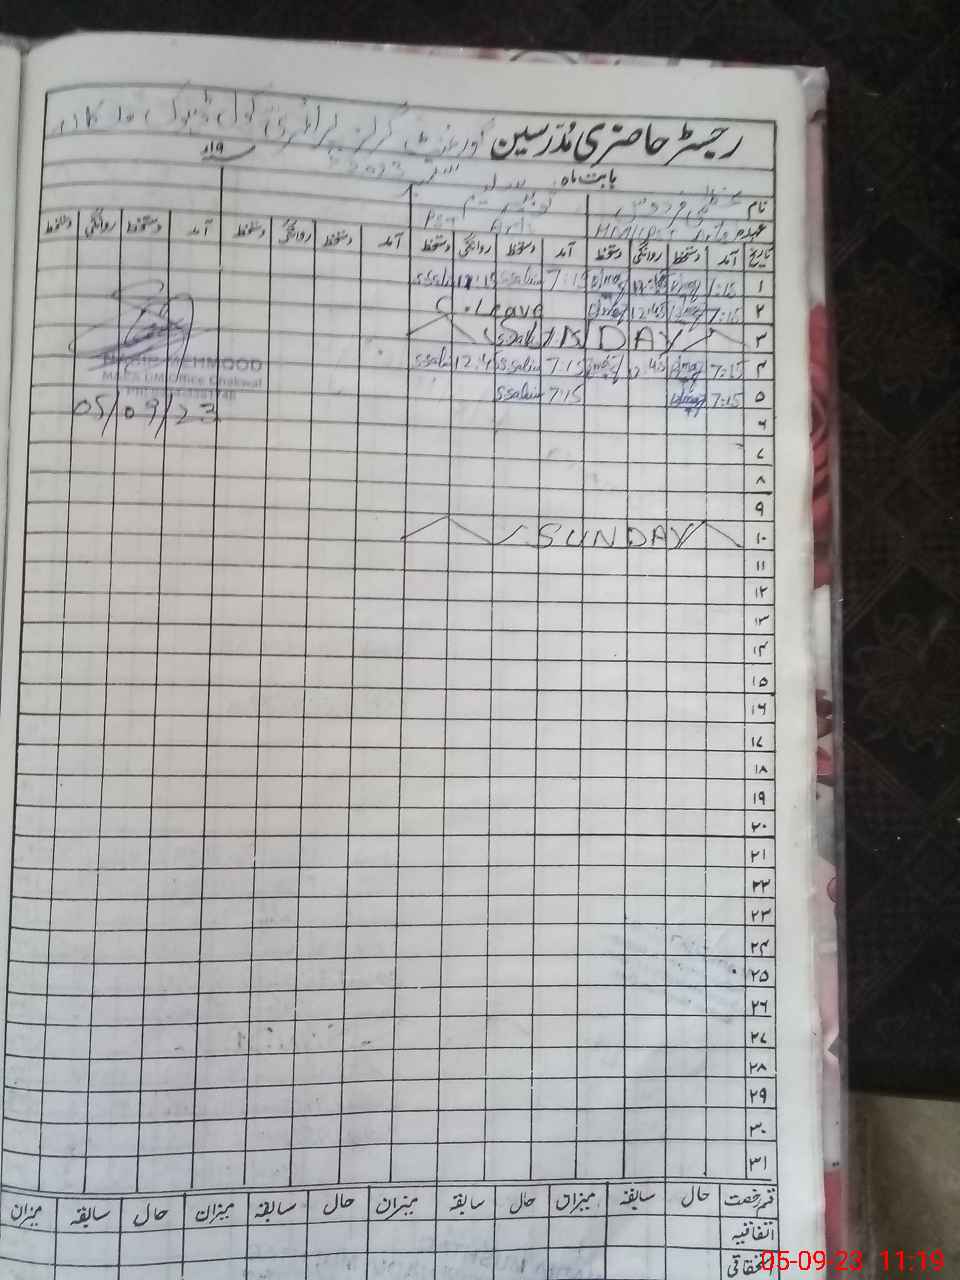 رجسٹر حاضری مدرسین گورنمنٹ گرلز پرائمری سکول ڈھوک
بابت ماہ ستمبر 2023 ۱۹ء
نام عظمیٰ فردوس
عہدہ HM/(PST Arts) PST Arts
تاریخ آمد دستخط روانگی دستخط آمد دستخط روانگی دستخط آمد دستخط روانگی دستخط آمد دستخط روانگی دستخط
۱ 7:15 7:15 Ssalim Ssalim
۲ 7:15 12:45 Leave
۳ SUNDAY
۴ 7:15 12:45 7:15 Ssalim 12:45 Ssalim
۵ 7:15 7:15 Ssalim
MEHMOOD
Office Chakwal
05/09/23
۶
۷
۸
۹
۱۰ SUNDAY
۱۱
۱۲
۱۳
۱۴
۱۵
۱۶
۱۷
۱۸
۱۹
۲۰
۲۱
۲۲
۲۳
۲۴
۲۵
۲۶
۲۷
۲۸
۲۹
۳۰
۳۱
قسم رخصت حال سابقہ میزان حال سابقہ میزان حال سابقہ میزان حال سابقہ میزان
اتفاقیہ
استحقاقی
05-09-23 11:19